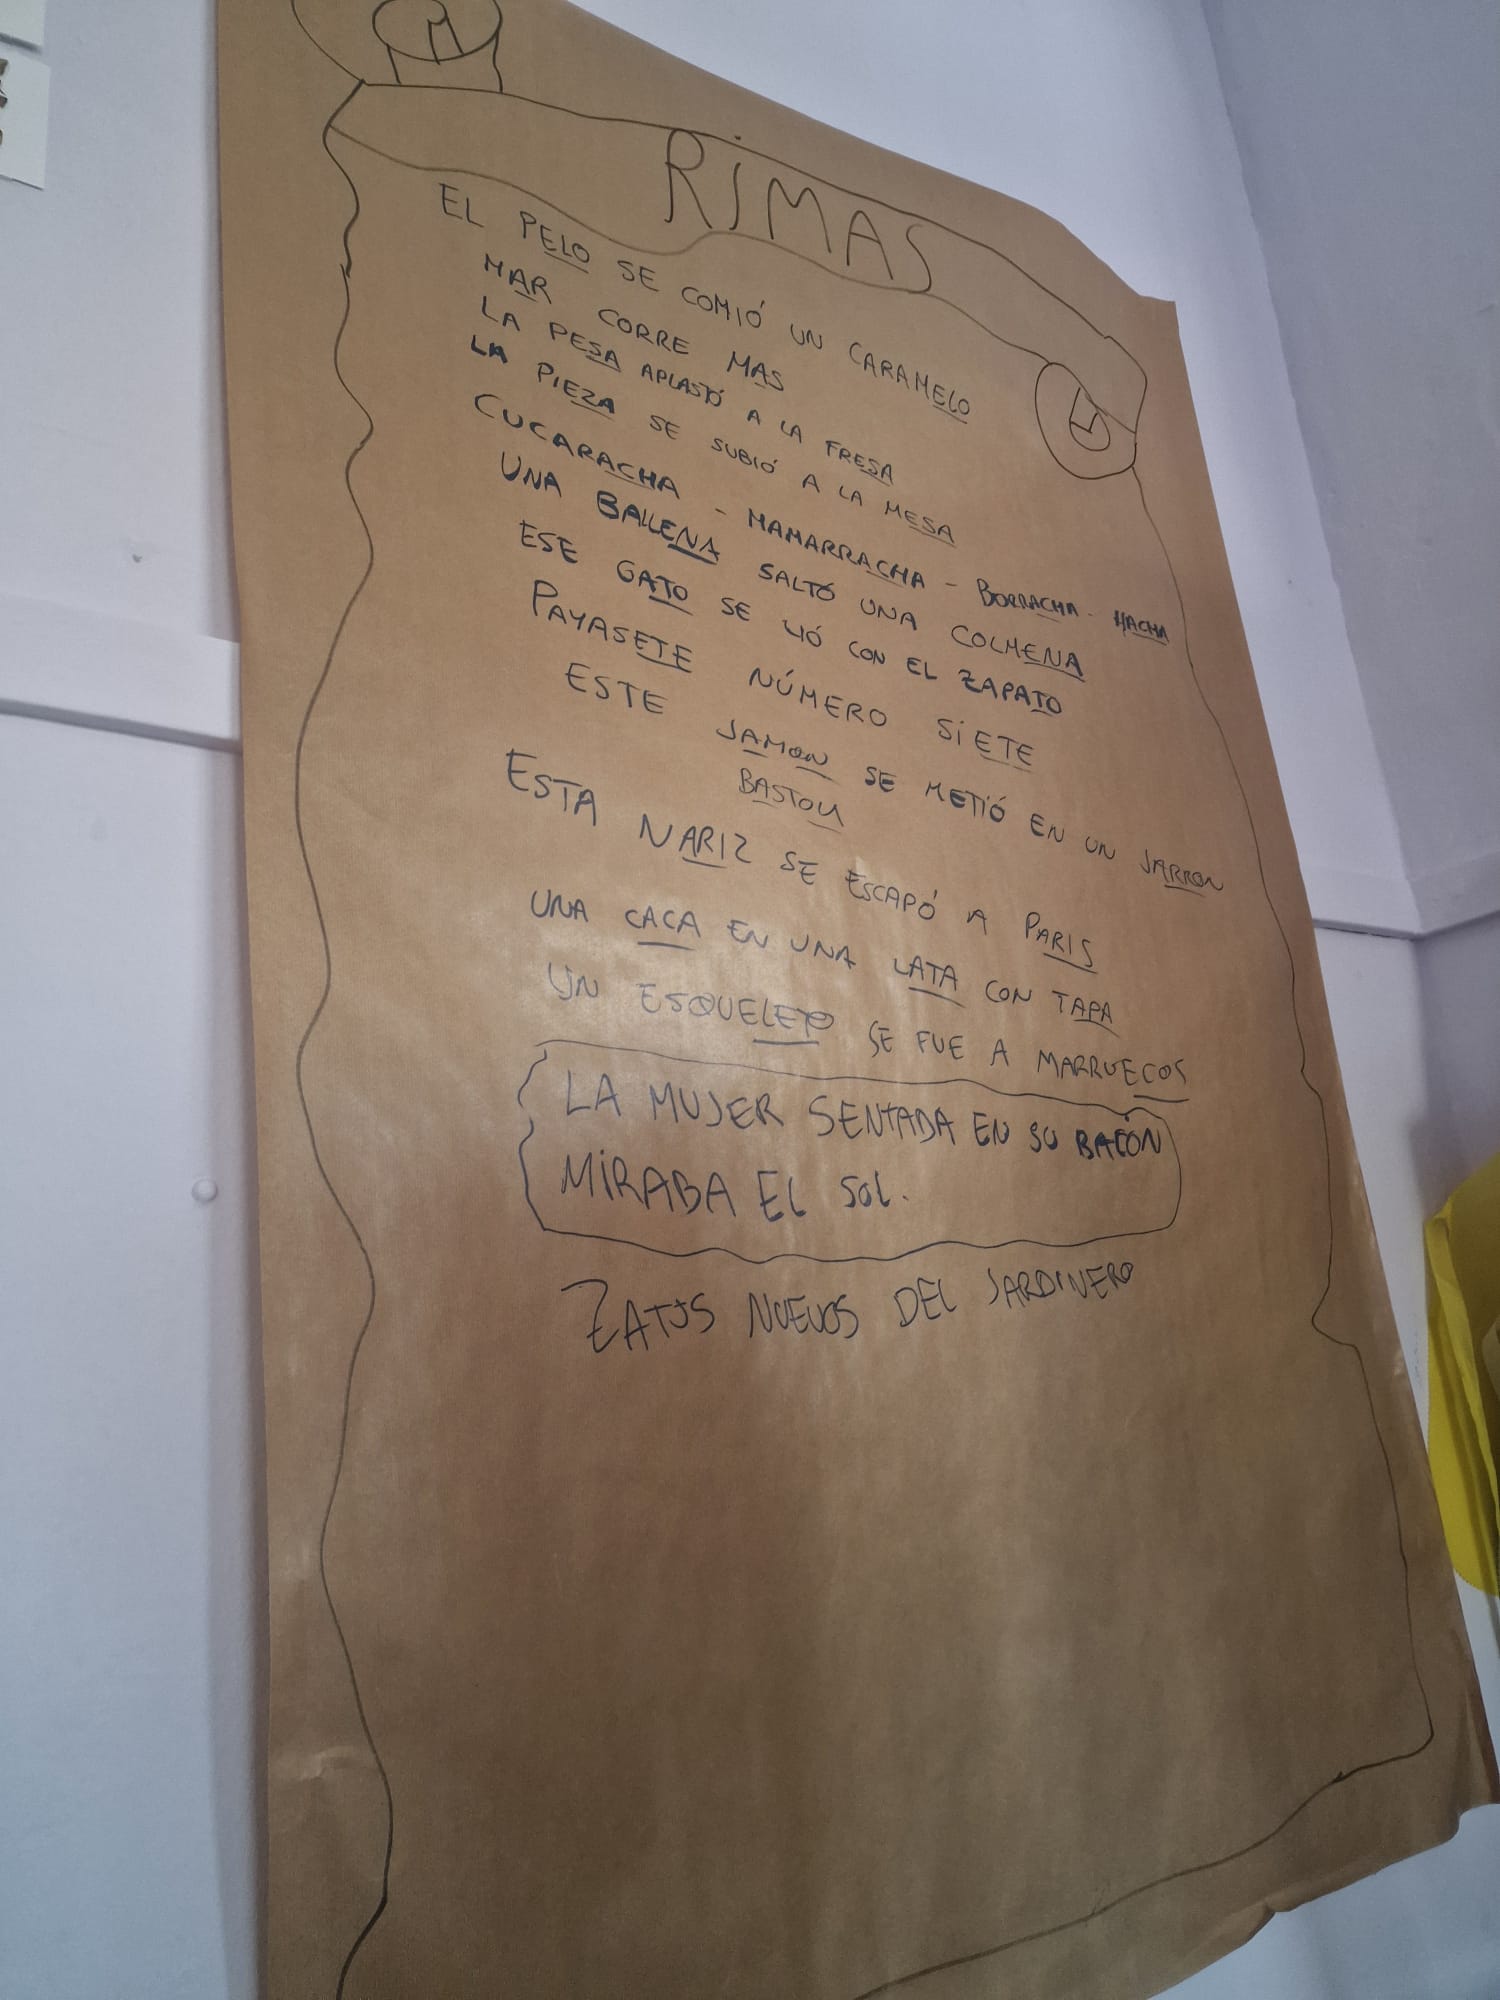 RIMAS
EL PELO SE COMIÓ UN CARAMELO
MAR CORRE MAS
LA PESA APLASTÓ A LA FRESA
LA PIEZA SE SUBIÓ A LA MESA
CUCARACHA - MAMARRACHA - BORRACHA - HACHA
UNA BALLENA SALTÓ UNA COLMENA
ESE GATO SE LIÓ CON EL ZAPATO
PAYASETE NÚMERO SIETE
ESTE JAMON SE METIÓ EN UN JARRON
BASTON
ESTA NARIZ SE ESCAPÓ A PARIS
UNA CACA EN UNA LATA CON TAPA
UN ESQUELETO SE FUE A MARRUECOS
LA MUJER SENTADA EN SU BACÓN
MIRABA EL SOL.
NUEVOS DEL JARDINERO